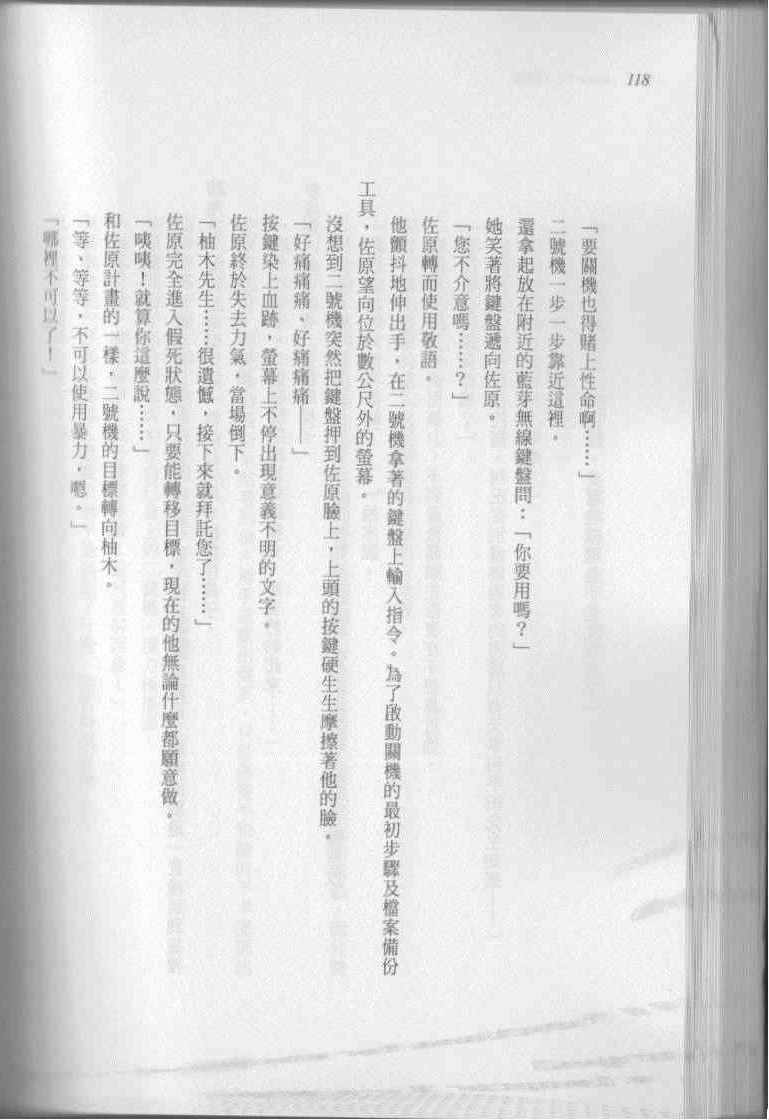 118
「要關機也得賭上性命啊……」
二號機一步一步靠近這裡。
還拿起放在附近的藍芽無線鍵盤問：「你要用嗎？」
她笑著將鍵盤遞向佐原。
「您不介意嗎……？」
佐原轉而使用敬語。
他顫抖地伸出手，在二號機拿著的鍵盤上輸入指令。為了啟動關機的最初步驟及檔案備份
工具，佐原望向位於數公尺外的螢幕。
沒想到二號機突然把鍵盤押到佐原臉上，上頭的按鍵硬生生摩擦著他的臉。
「好痛痛痛、好痛痛痛——」
按鍵染上血跡，螢幕上不停出現意義不明的文字。
佐原終於失去力氣，當場倒下。
「柚木先生……很遺憾，接下來就拜託您了……」
佐原完全進入假死狀態，只要能轉移目標，現在的他無論什麼都願意做。
「咦咦！就算你這麼說……」
和佐原計畫的一樣，二號機的目標轉向柚木。
「等、等等，不可以使用暴力，嗯。」
「哪裡不可以了！」